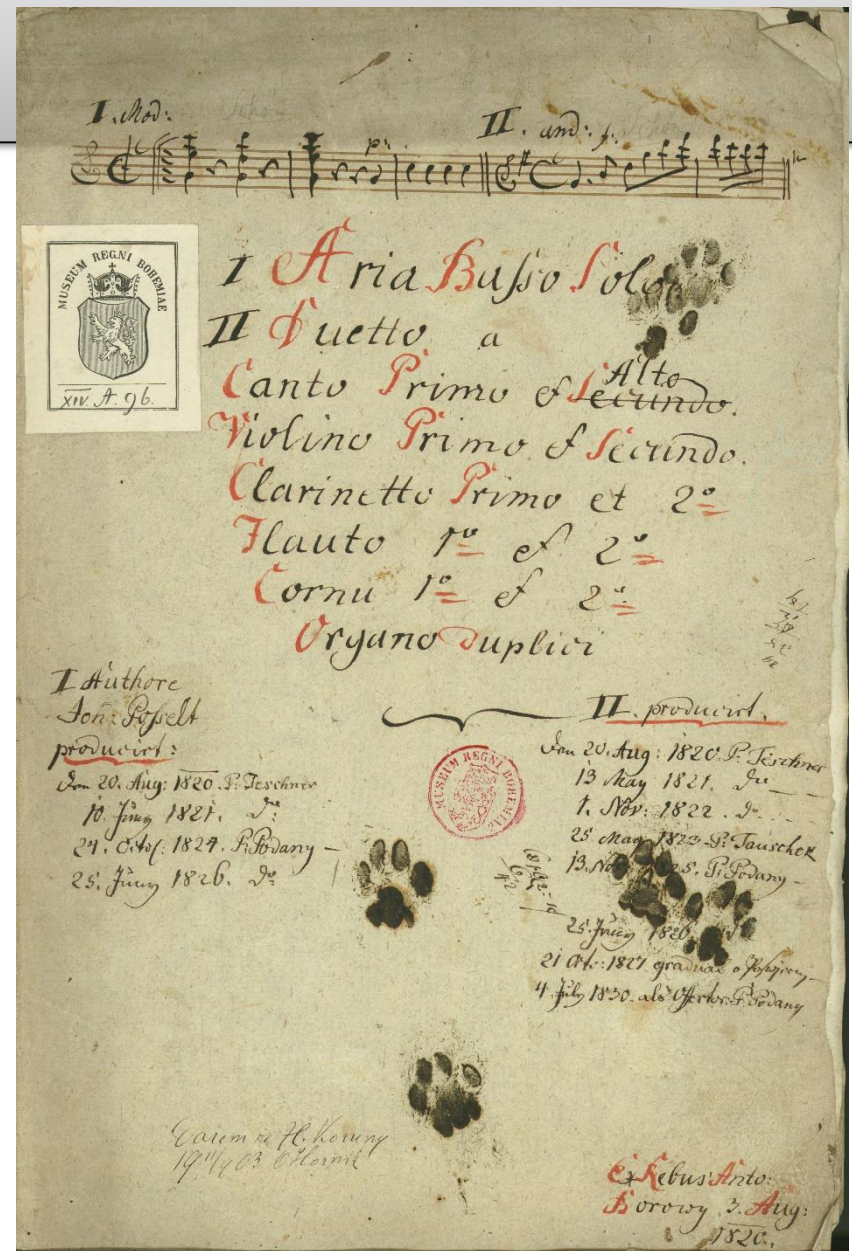 I. Mod:
II. and: f.
p:
MUSEUM REGNI BOHEMIAE
XIV. A. 96.
I Aria Basso Solo
II Duetto a
Alto
Canto Primo et Secundo.
Violino Primo et Secundo.
Clarinetto Primo et 2º
Flauto 1º et 2º
Cornu 1º et 2º
Organo Duplici
I Authore
Joh: Posselt
producirt:
Den 20. Aug: 1820. P. Teschner
10. Juny 1821. dº
24. Octo: 1824. P. Podany –
25. Juny 1826. dº
MUSEUM REGNI BOHEMIAE
II. producirt.
Den 20. Aug: 1820. P. Teschner
13 May 1821. dº
1. Nov: 1822. dº
25 May 1823. P. Tauschek
13. No 25. P. Podany –
25. Juny 1826
21 Oct: 1827 graduale
4 July 1830. als Offertor. P. Podany
Darem
19 03
Ex Rebus Anto:
Borowy 3. Aug:
1820.